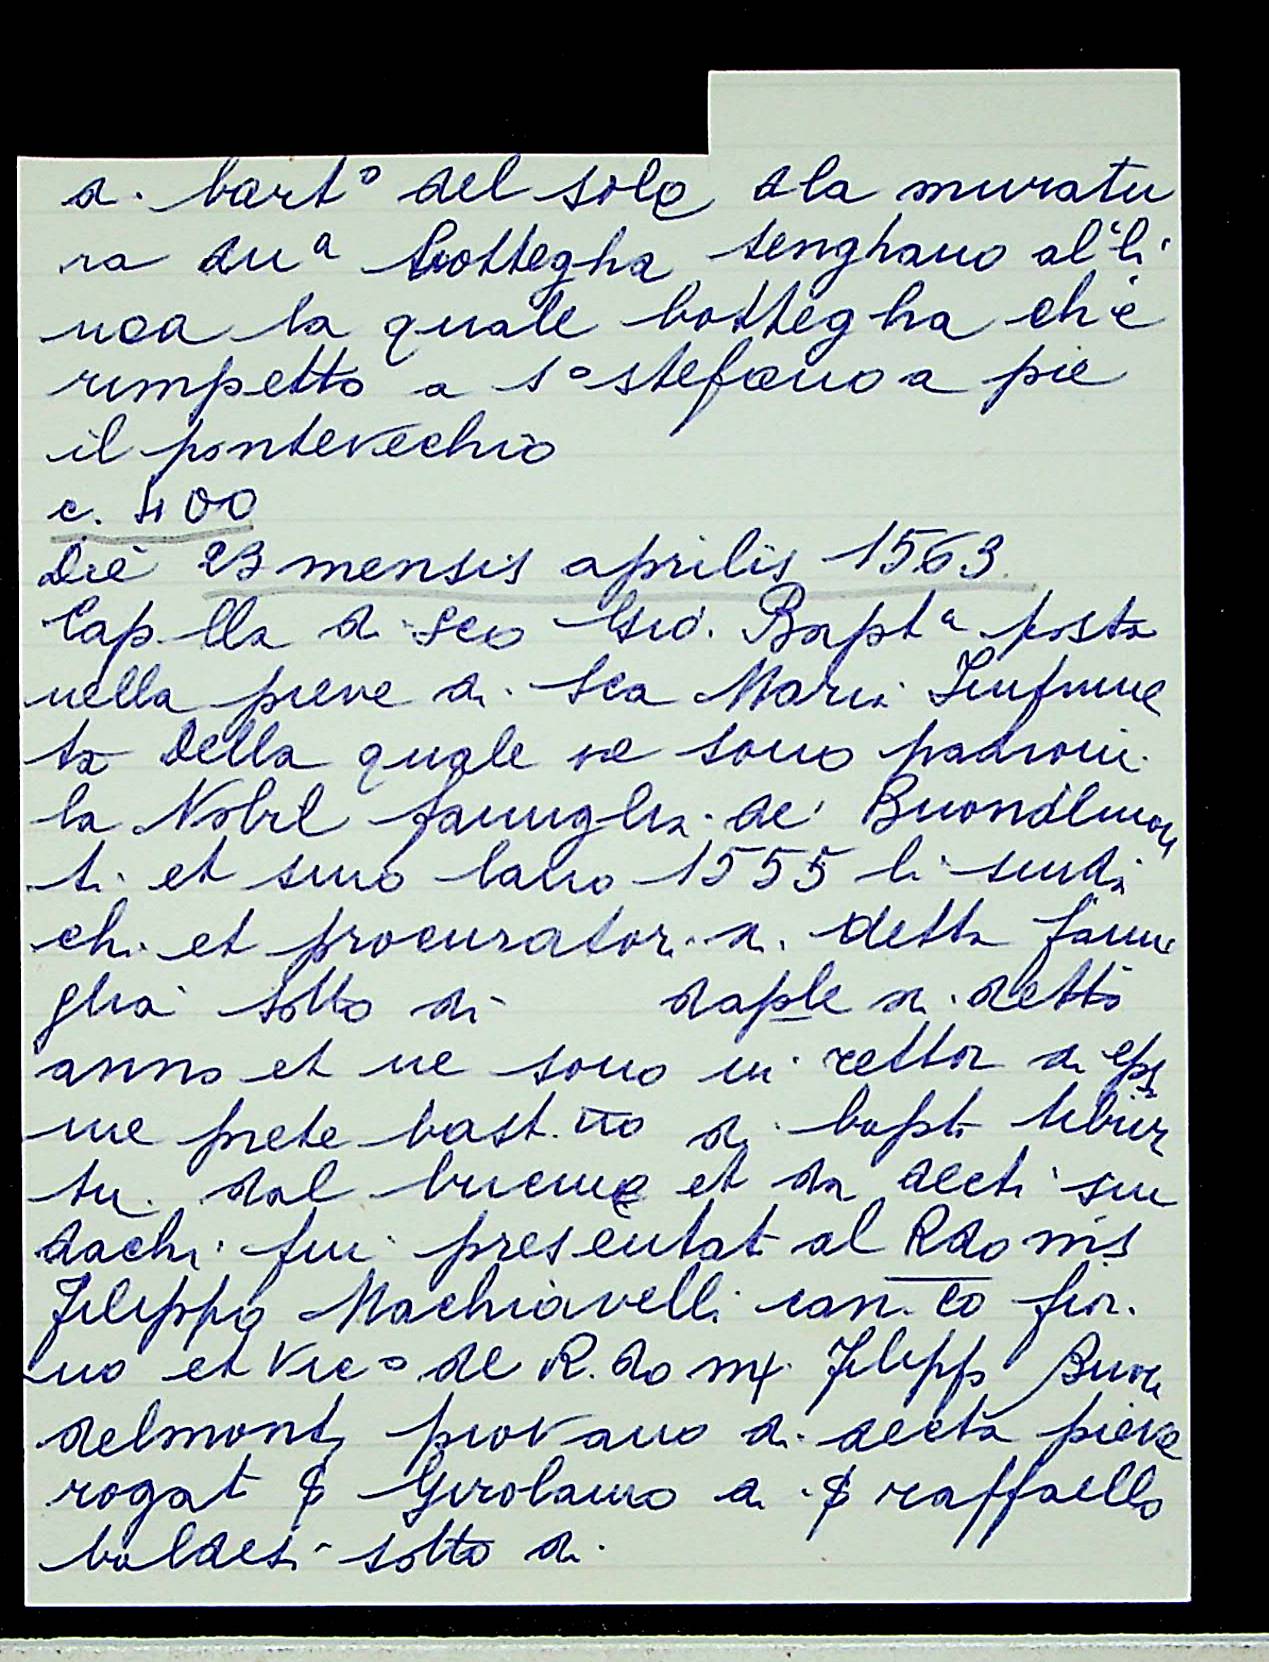 di bart° del sole ala muratu
ra duª bottegha tenghano al li
nea la quale bottegha ch'è
rimpetto a s° stefano a piè
il pontevechio
c. 400
Die 23 mensis aprilis 1563.
Cap.lla di sco Gio. Baptª posta
nella pieve di sca Maria Imprune
ta della quale ne sono padroni
la Nobil famiglia de' Buondelmon
ti et sino lano 1555 li sinda
chi et procuratori di detta fami
glia sotto di daple di detto
anno et ne sono in rettor di
me prete bast.no di bapt
dal et da decti sin
dachi fu presentat al Rdo ms
Filippo Machiavelli can.co fior.
no et Vic° del R.do Filipp Buon
delmont piovano di decta pieve
rogat Girolamo di raffaello
baldesi sotto di